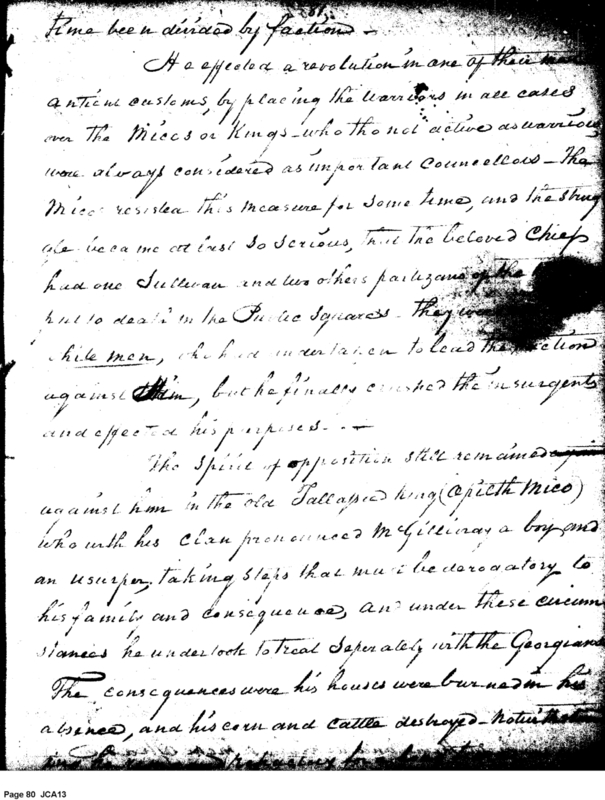 81.
time been divided by faction —
He effected a revolution in one of their most
antient customs, by placing the warriors in all cases
over the Micos or Kings - who tho not active as warriors
were always considered as important Councellors — The
Micos resisted this measure for some time, and the strug
gle became at first so serious, that the beloved Chief
had one Sullivan and two others partizans of the
put to death in the Public Squares - they were
white men, who had undertaken to lead the faction
against him, but he finally crushed the insurgents
and effected his purposes. —
The spirit of opposition still remained
against him in the old Tallassee king (Opilth Mico)
who with his clan pronounced McGillivray a boy and
an usurper, taking steps that must be derogatory to
his family and consequence, and under these circum
stances he undertook to treat seperately with the Georgians
The consequences were his houses were burned in his
absence, and his corn and cattle destroyed - notwithstan
ding he refractory for a
Page 80 JCA13